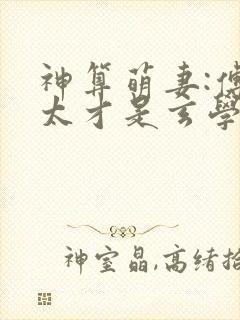 神算萌妻:傅
太才是玄學
神室晶,高绪拾